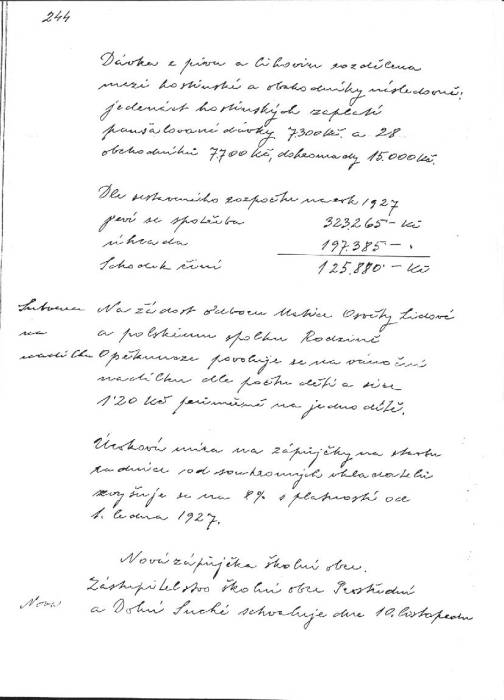 244
Dávka z piva a lihovin rozdělena
mezi hostinské a obchodníky následovně:
jedenáct hostinských zaplatí
paušalované dávky 7300 Kč. a 28
obchodníků 7.700 Kč, dohromady 15.000 Kč.
Dle sestaveného rozpočtu na rok 1927
jeví se spotřeba 323.265 – Kč
úhrada 197.385 – .
Schodek činí 125.880 – Kč
Subvence
na
nadílku
Na žádost odboru Matice Osvěty Lidové
a polskému spolku Rodzině
Opiekuncze povoluje se na vánoční
nadílku dle počtu dětí a sice
1'20 Kč průměrně na jedno dítě.
Úroková míra na zápůjčky na stavbu
radnice od soukromých vkladatelů
zvyšuje se na 8% s platností od
1. ledna 1927.
Nová zápůjčka školní obce.
Zastupitelstvo školní obce Prostřední
Nová
a Dolní Suché schvaluje dne 10. listopadu